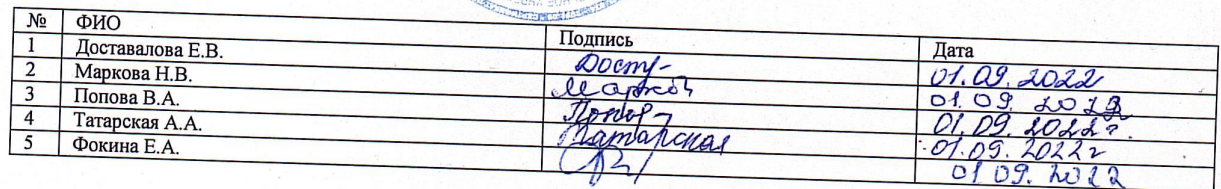 № ФИО Подпись Дата
1 Доставалова Е.В. Дост 01.09.2022
2 Маркова Н.В. Марков 01.09.2022
3 Попова В.А. 01.09.2022г.
4 Татарская А.А. Татарская 01.09.2022г
5 Фокина Е.А. 01.09.2022